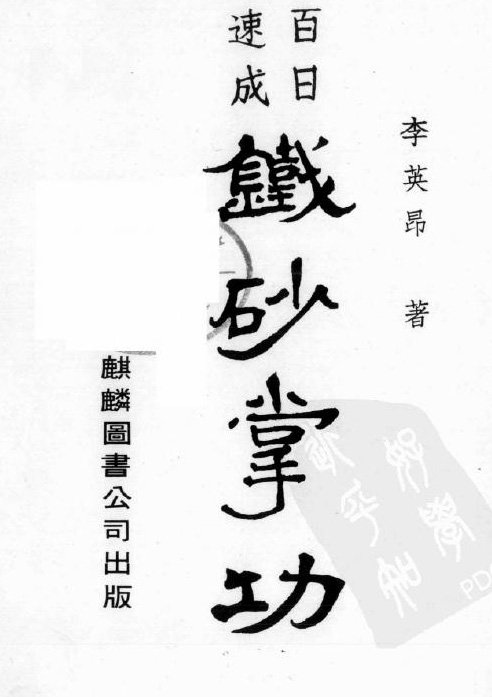 李英昂 著
百日
速成
鐵砂掌功
麒麟圖書公司出版